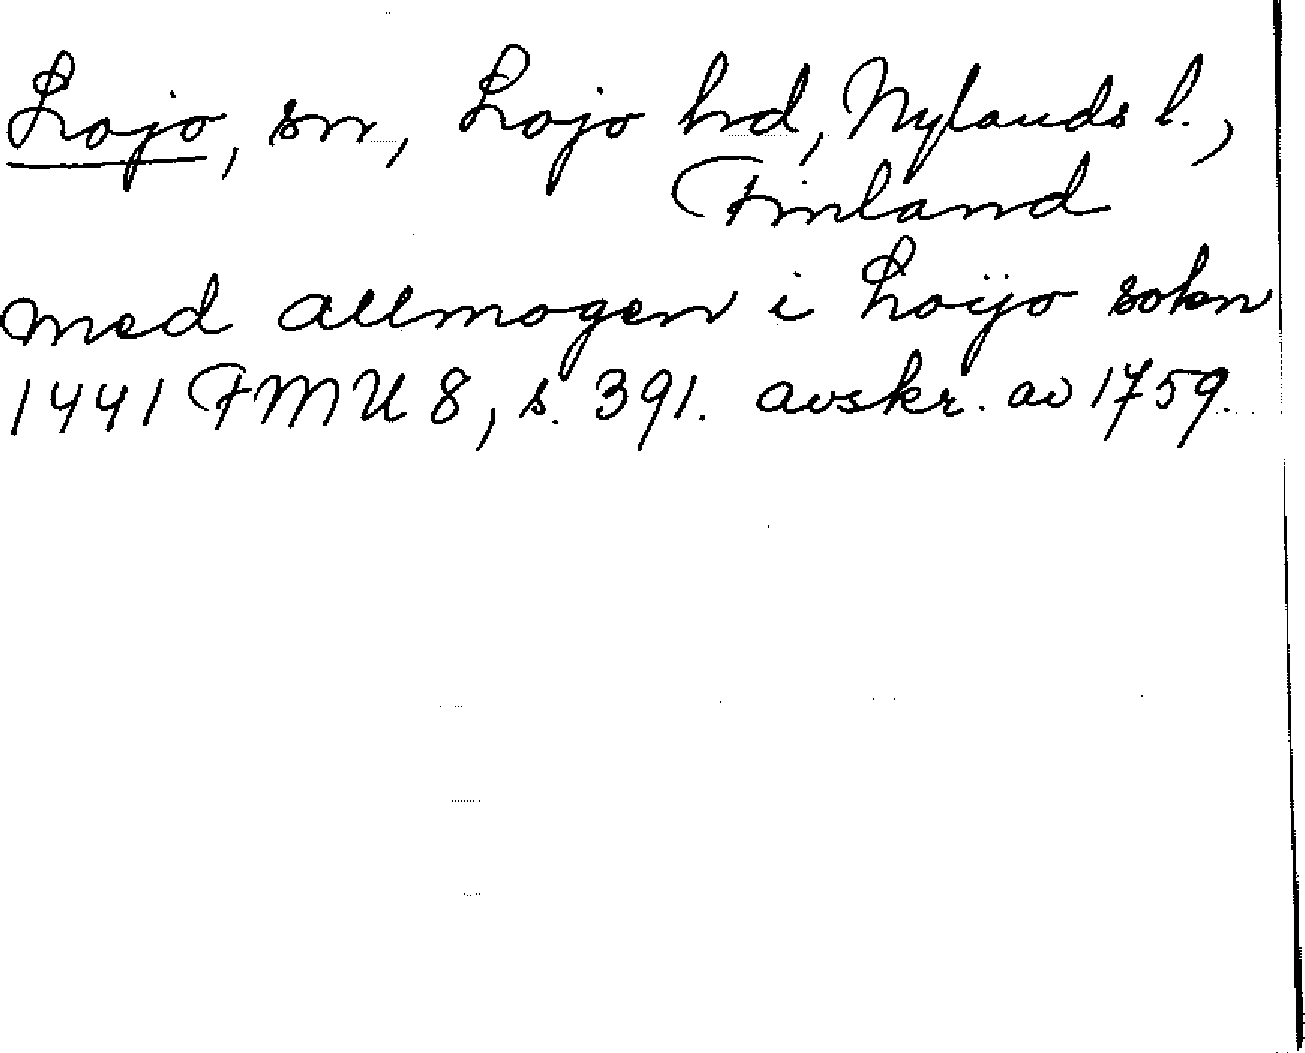 Lojo, sn, Lojo hd, Nylands l.,
Finland
med allmogen i Loijo sokn
1441 FMU 8, s. 391. avskr. av 1759.